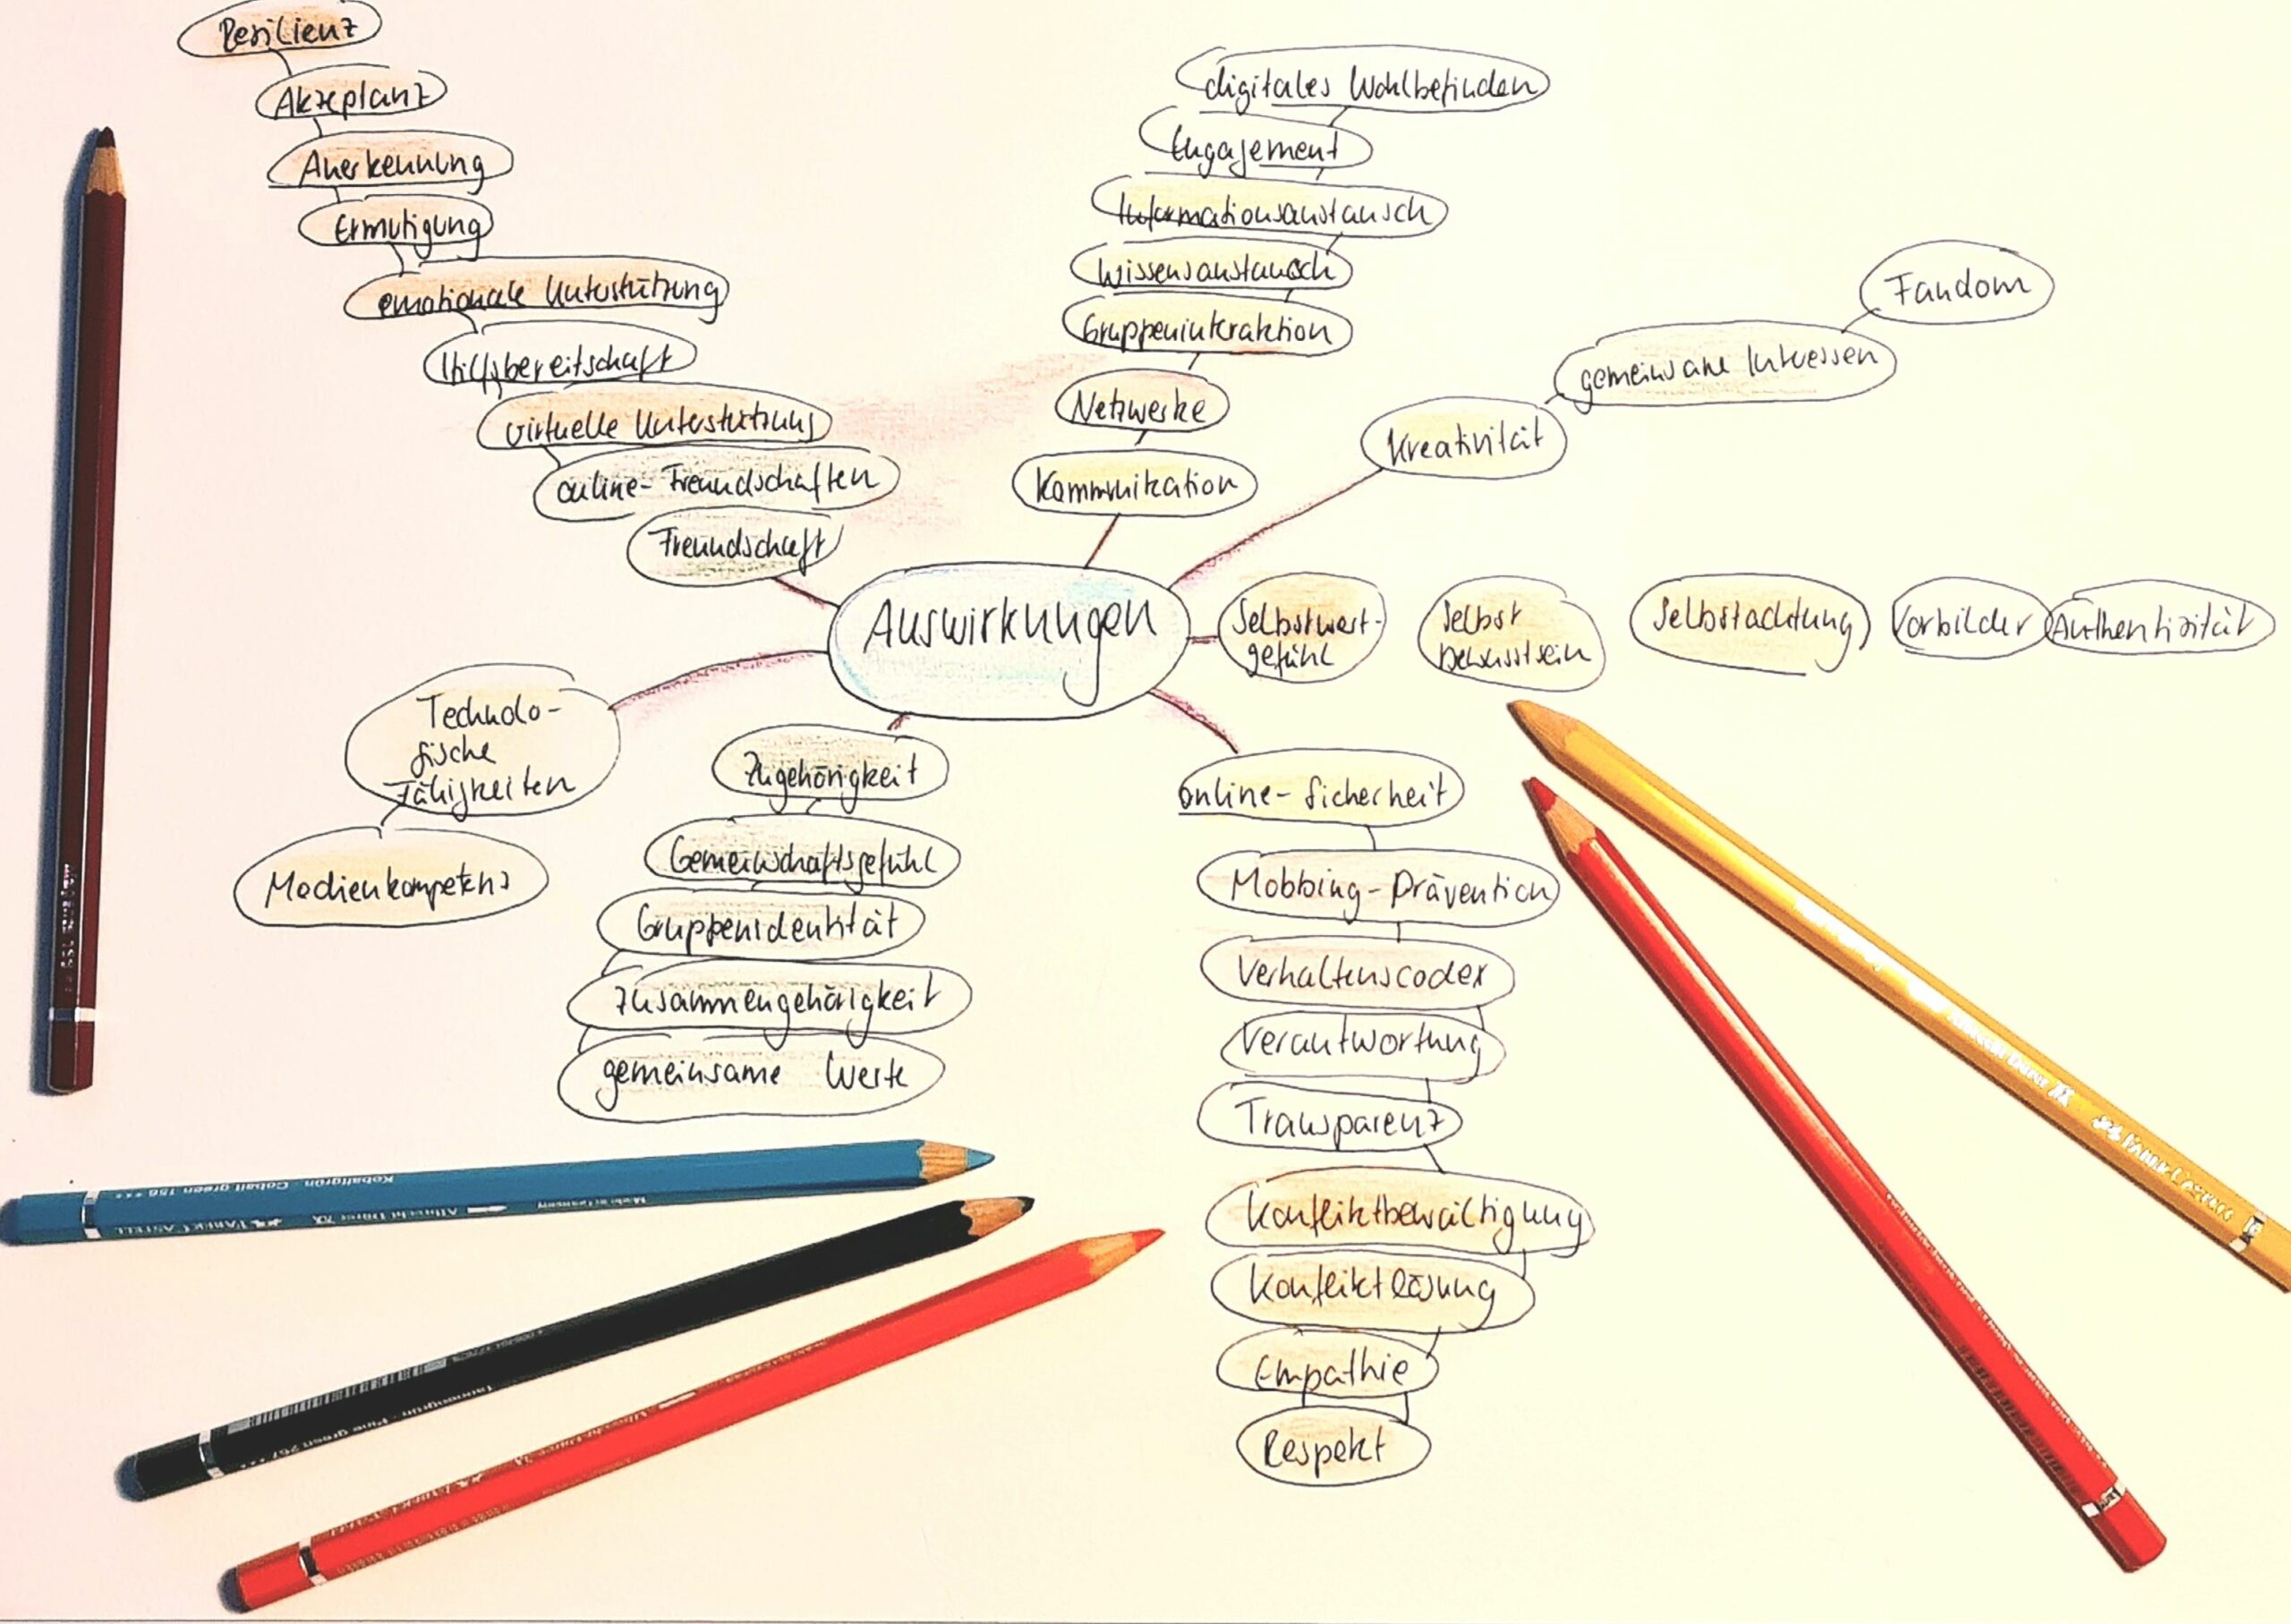 Resilienz
Akzeptanz
Anerkennung
Ermutigung
emotionale Unterstützung
Hilfsbereitschaft
virtuelle Unterstützung
online-Freundschaften
Freundschaft
digitales Wohlbefinden
Engagement
Informationsaustausch
Wissensaustausch
Gruppeninteraktion
Netzwerke
Kommunikation
Fandom
gemeinsame Interessen
Kreativität
Auswirkungen
Selbstwert-
gefühl
Selbst
bewusstsein
Selbstachtung
Vorbilder
Authentizität
Technolo-
gische
Fähigkeiten
Medienkompetenz
Zugehörigkeit
Gemeinschaftsgefühl
Gruppenidentität
Zusammengehörigkeit
gemeinsame Werte
online-Sicherheit
Mobbing-Prävention
Verhaltenscodex
Verantwortung
Transparenz
Konfliktbewältigung
Konfliktlösung
Empathie
Respekt
Kobaltgrün · Cobalt green 156 ***
FABER-CASTELL Albrecht Dürer Made in Germany